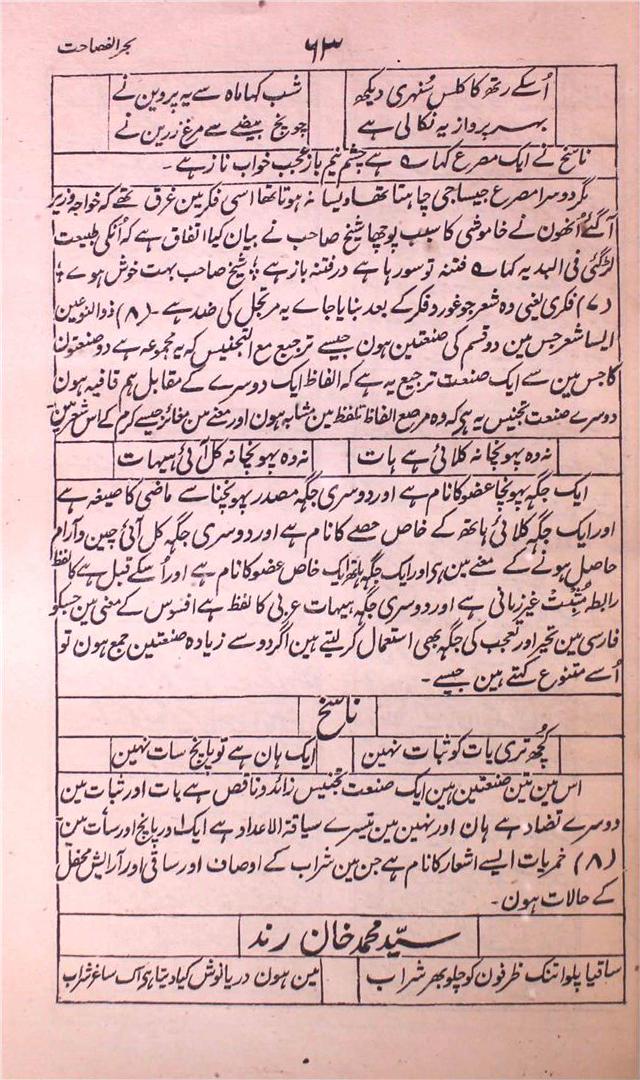 بحر الفصاحت
۶۳
اُسکے رتھ کا کلس سُنہری دیکھ شب کہا ماہ سے یہ پروین نے
بہر پرواز یہ نکالی ہے چونچ بیضے سے مرغ زرین نے
ناسخ نے ایک مصرع کہا ؎ ہے چشم نیم باز عجب خواب ناز ہے ۔
مگر دوسرا مصرع جیسا جی چاہتا تھا ویسا نہ ہوتا تھا اسی فکر مین غرق تھے کہ خواجہ وزیر
آگئے اُنھون نے خاموشی کا سبب پوچھا شیخ صاحب نے بیان کیا اتفاق ہے کہ اُنکی طبیعت
لڑگئی فی البدیہ کہا ؎ فتنہ تو سو رہا ہے در فتنہ باز ہے ؛ شیخ صاحب بہت خوش ہوے ؛
(۷) فکری یعنی وہ شعر جو غور و فکر کے بعد بنایا جاے یہ مرتجل کی ضد ہے ۔ (۸) ذوالنوعین
ایسا شعر جس مین دو قسم کی صنعتین ہون جیسے ترجیع مع التجنیس کہ یہ مجموعہ ہے دو صنعتون
کا جس مین سے ایک صنعت ترجیع یہ ہے کہ الفاظ ایک دوسرے کے مقابل ہم قافیہ ہون
دوسرے صنعت تجنیس یہ ہی کہ وہ مرصع الفاظ تلفظ مین مشابہ ہون اور معنے مین مغائر جیسے کرم کے اس شعر مین
نہ وہ پہونچا نہ کلائی ہے ہات نہ وہ پہونچا نہ کل آئی ہیہات
ایک جگہ پہونچا عضو کا نام ہے اور دوسری جگہ مصدر پہونچنا سے ماضی کا صیغہ ہے
اور ایک جگہ کلائی ہاتھ کے خاص حصے کا نام ہے اور دوسری جگہ کل آئی چین و آرام
حاصل ہونے کے معنے مین ہی اور ایک جگہ ہاتھ ایک خاص عضو کا نام ہے اور اُسکے قبل ہے کا لفظ
رابطہ مثبت غیر زمانی ہے اور دوسری جگہ ہیہات عربی کا لفظ ہے افسوس کے معنی مین جسکو
فارسی مین تحیر اور تعجب کی جگہ بھی استعمال کرلیتے ہین اگر دو سے زیادہ صنعتین جمع ہون تو
اُسے متنوع کہتے ہین جیسے ۔
ناسخ
کُچھ تری بات کو ثبات نہین ایک ہان ہے تو پانچ سات نہین
اس مین تین صنعتین ہین ایک صنعت تجنیس زائد و ناقص ہے بات اور ثبات مین
دوسرے تضاد ہے ہان اور نہین مین تیسرے سیاقۃ الاعداد ہے ایک اور پانچ اور سات مین
(۸) خمریات ایسے اشعار کا نام ہے جن مین شراب کے اوصاف اور ساقی اور آرایش محفل
کے حالات ہون ۔
سیّد محمد خان رند
ساقیا پلوا تنک ظرفون کو چلو بھر شراب مین ہون دریا نوش کیا دیتا ہی اک ساغر شراب